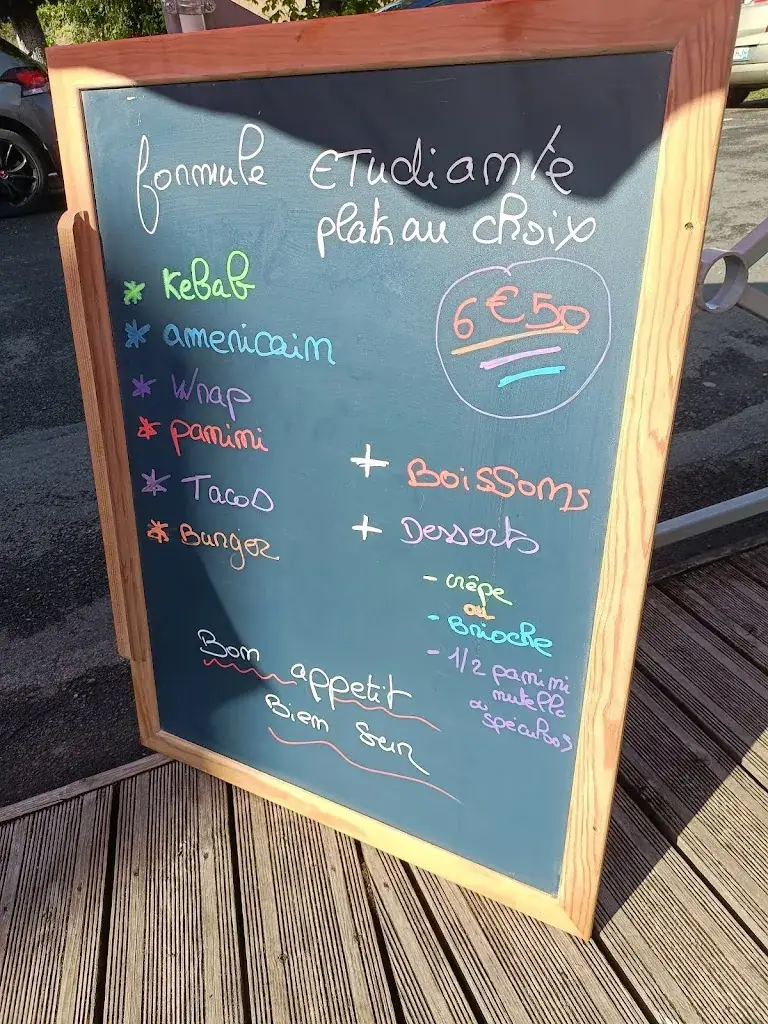 formule ETudiante
plats au choix
* Kebab
* americain
* Wrap
* panini
* Tacos
* Burger
6€50
+ BoissoNs
+ Desserts
- crêpe
ou
- Brioche
- 1/2 panini
nutella
spéculos
Bon appetit
Bien sur